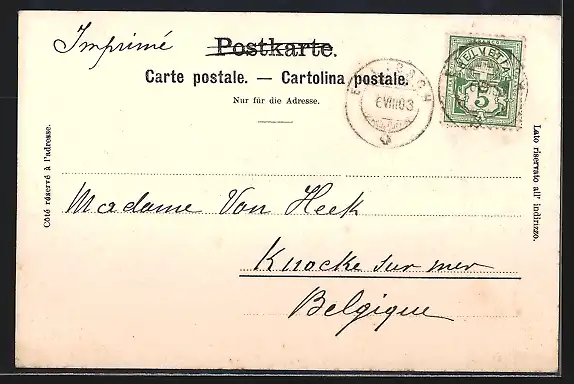 Imprimé
Postkarte.
Carte postale. — Cartolina postale.
Nur für die Adresse.
6 VIII 03
HELVETIA
5
Côté réservé à l'adresse.
Lato riservato all' indirizzo.
Madame Von Heek
Knocke sur mer
Belgique